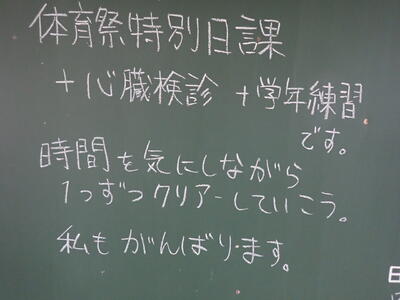 体育祭特別日課
+心臓検診 +学年練習
です。
時間を気にしながら
1つずつクリアーしていこう。
私もがんばります。
日